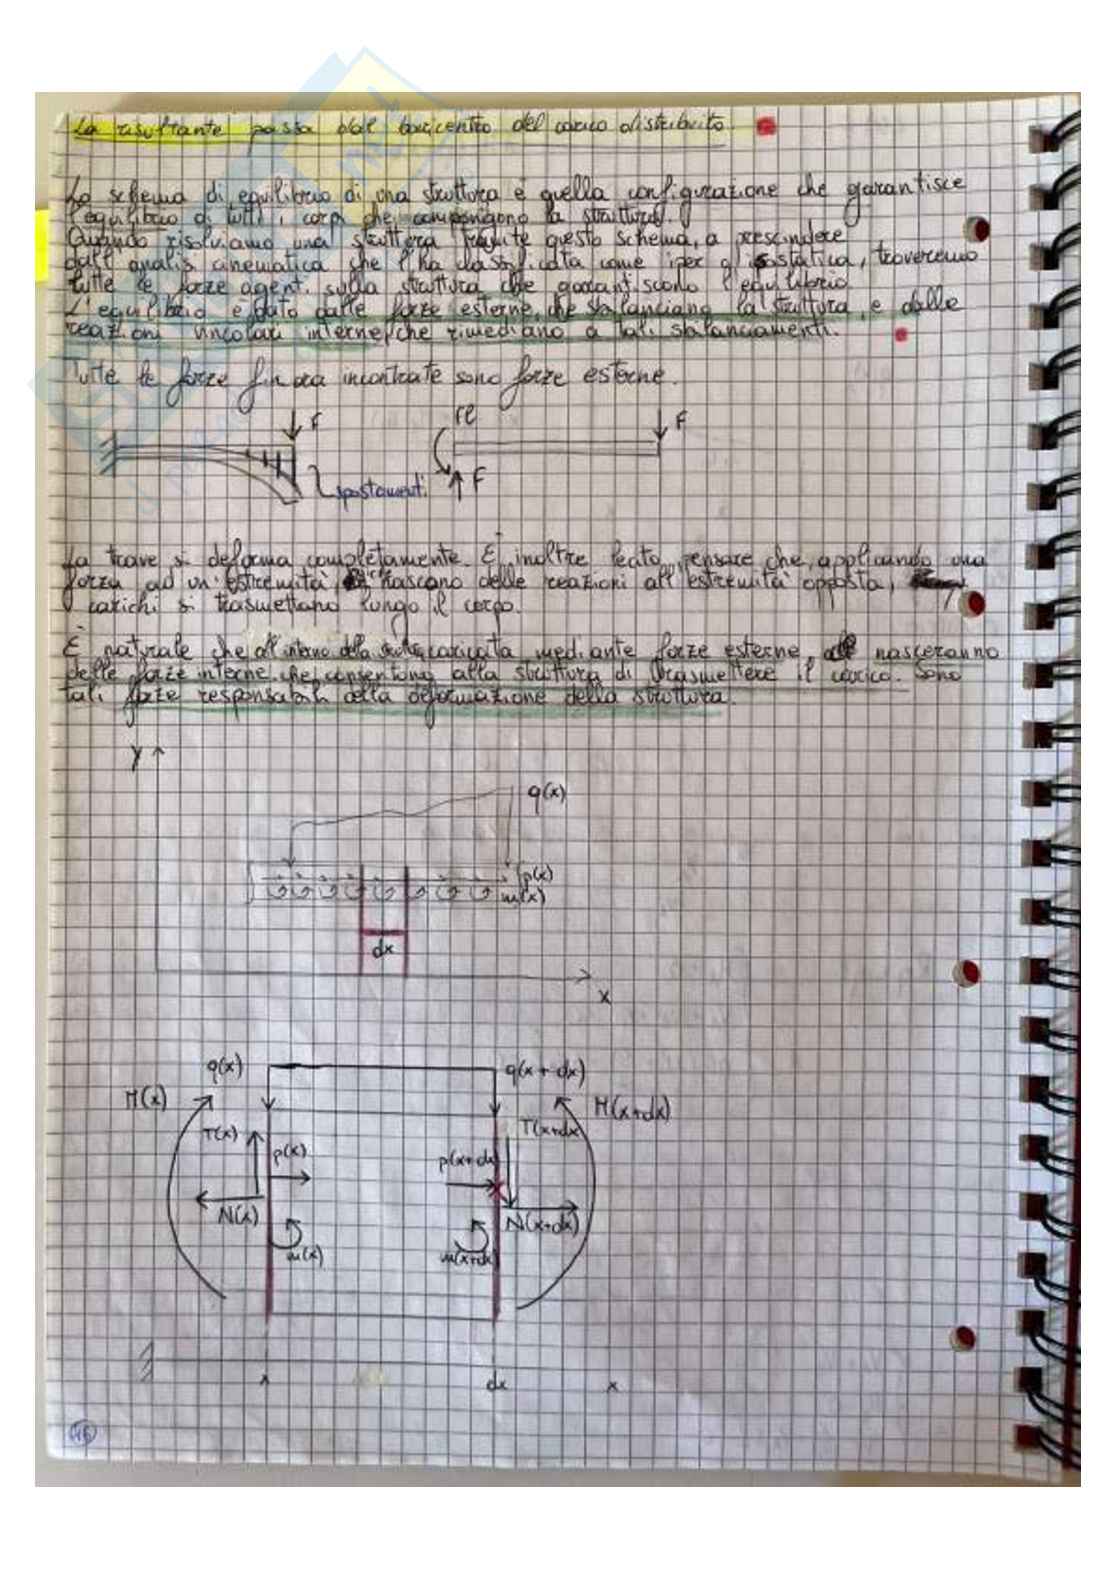 La risultante passa dal baricentro del carico distribuito.
Lo schema di equilibrio di una struttura è quella configurazione che garantisce
l'equilibrio di tutti i corpi che compongono la struttura.
Quando risolviamo una struttura tramite questo schema, a prescindere
dall'analisi cinematica che l'ha classificata come iper o isostatica, troveremo
tutte le forze agenti sulla struttura che garantiscono l'equilibrio.
L'equilibrio è dato dalle forze esterne, che sbilanciano la struttura, e dalle
reazioni vincolari interne, che rimediano a tali sbilanciamenti.
Tutte le forze finora incontrate sono forze esterne.
F
F
F
spostamenti
La trave si deforma completamente. È inoltre lecito pensare che, applicando una
forza ad un'estremità, nascano delle reazioni all'estremità opposta,
i carichi si trasmettano lungo il corpo.
È naturale che all'interno della struttura caricata mediante forze esterne, nasceranno
delle forze interne che consentono alla struttura di trasmettere il carico. Sono
tali forze responsabili della deformazione della struttura.
y
q(x)
p(x)
m(x)
dx
x
q(x)
q(x+dx)
M(x)
M(x+dx)
T(x)
T(x+dx)
p(x)
p(x+dx)
N(x)
N(x+dx)
m(x)
m(x+dx)
x
dx
x